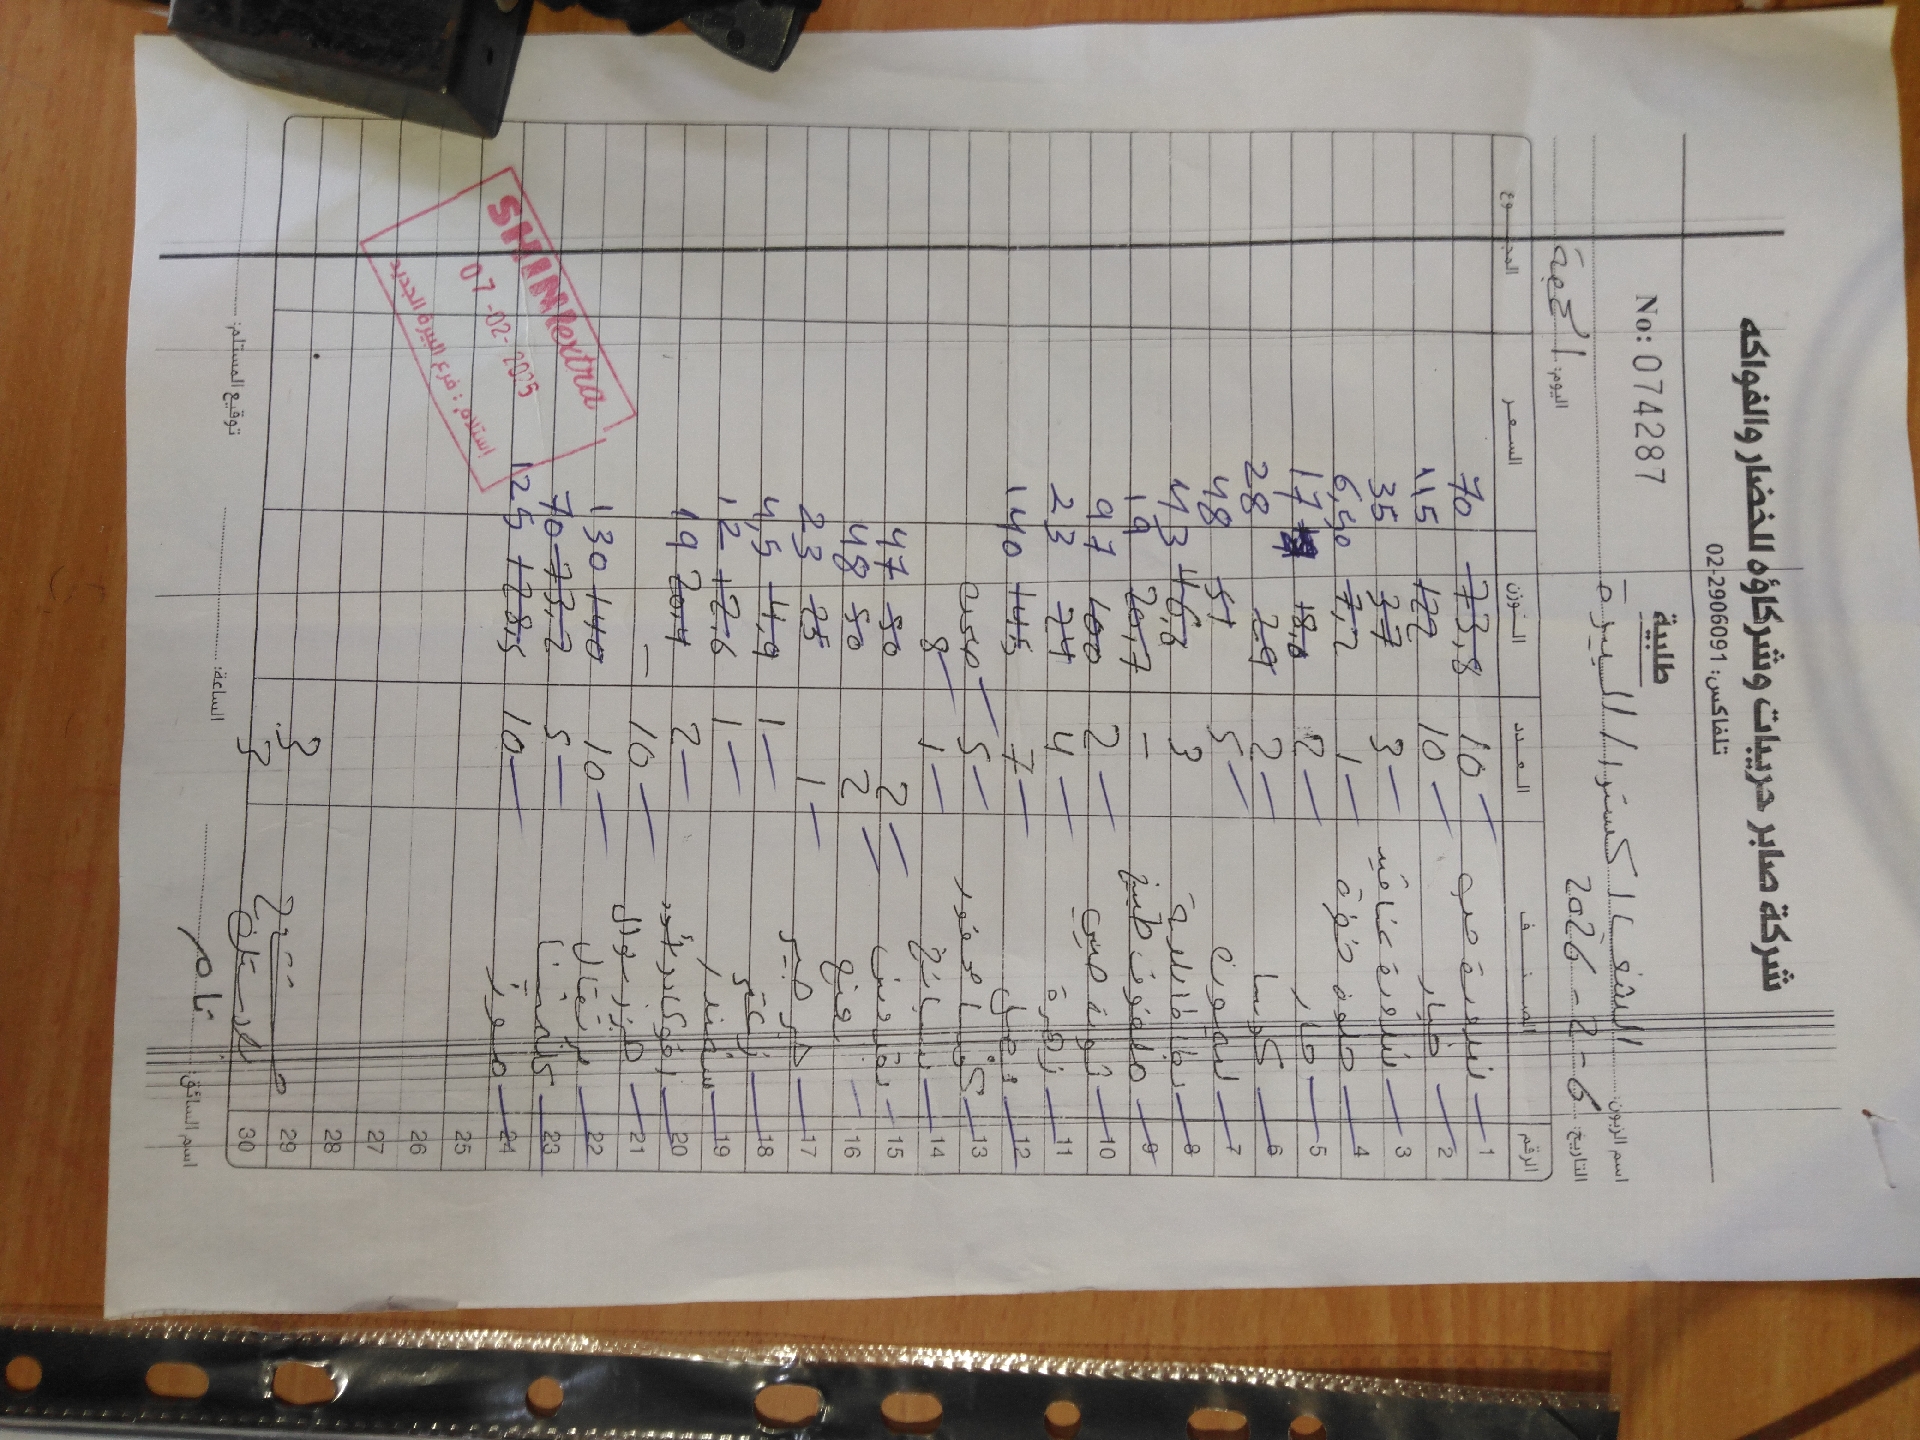 شركة صابر حريبات وشركاؤه للخضار والفواكه
تلفاكس: 02-2906091
طلبية
No: 074287
اسم الزبون: الشني اكسترا / البيرة
التاريخ: 6-2-2026 اليوم: الجمعة
الرقم الصنف العدد الوزن السعر المجموع
1 بندورة حب 10 73,8 70
2 خيار 10 122 115
3 بندورة عناقيد 3 37 35
4 حلوة 1 7,2 6,50
5 حار 2 18,0 17
6 كوسا 2 29 28
7 ليمون 5 51 48
8 بطاطا 3 46,6 43
9 ملفوف - 20,7 19
10 ثومة صيني 2 100 97
11 زهرة 4 24 23
12 بصل 7 145 140
13 5
14 سبانخ 1 8
15 بقدونس 2 50 47
16 نعنع 2 50 48
17 1 25 23
18 زعتر 1 4,9 4,5
19 1 12,6 12
20 افوكادو 2 20,4 19
21 10 -
22 برتقال 10 140 130
23 كلمنتينا 5 73,2 70
24 موز 10 128,5 125
25
26
27
28
29
30
SHINIextra
07-02-2025
استلام: فرع البيرة الجديد
اسم السائق: تامر الساعة: توقيع المستلم: